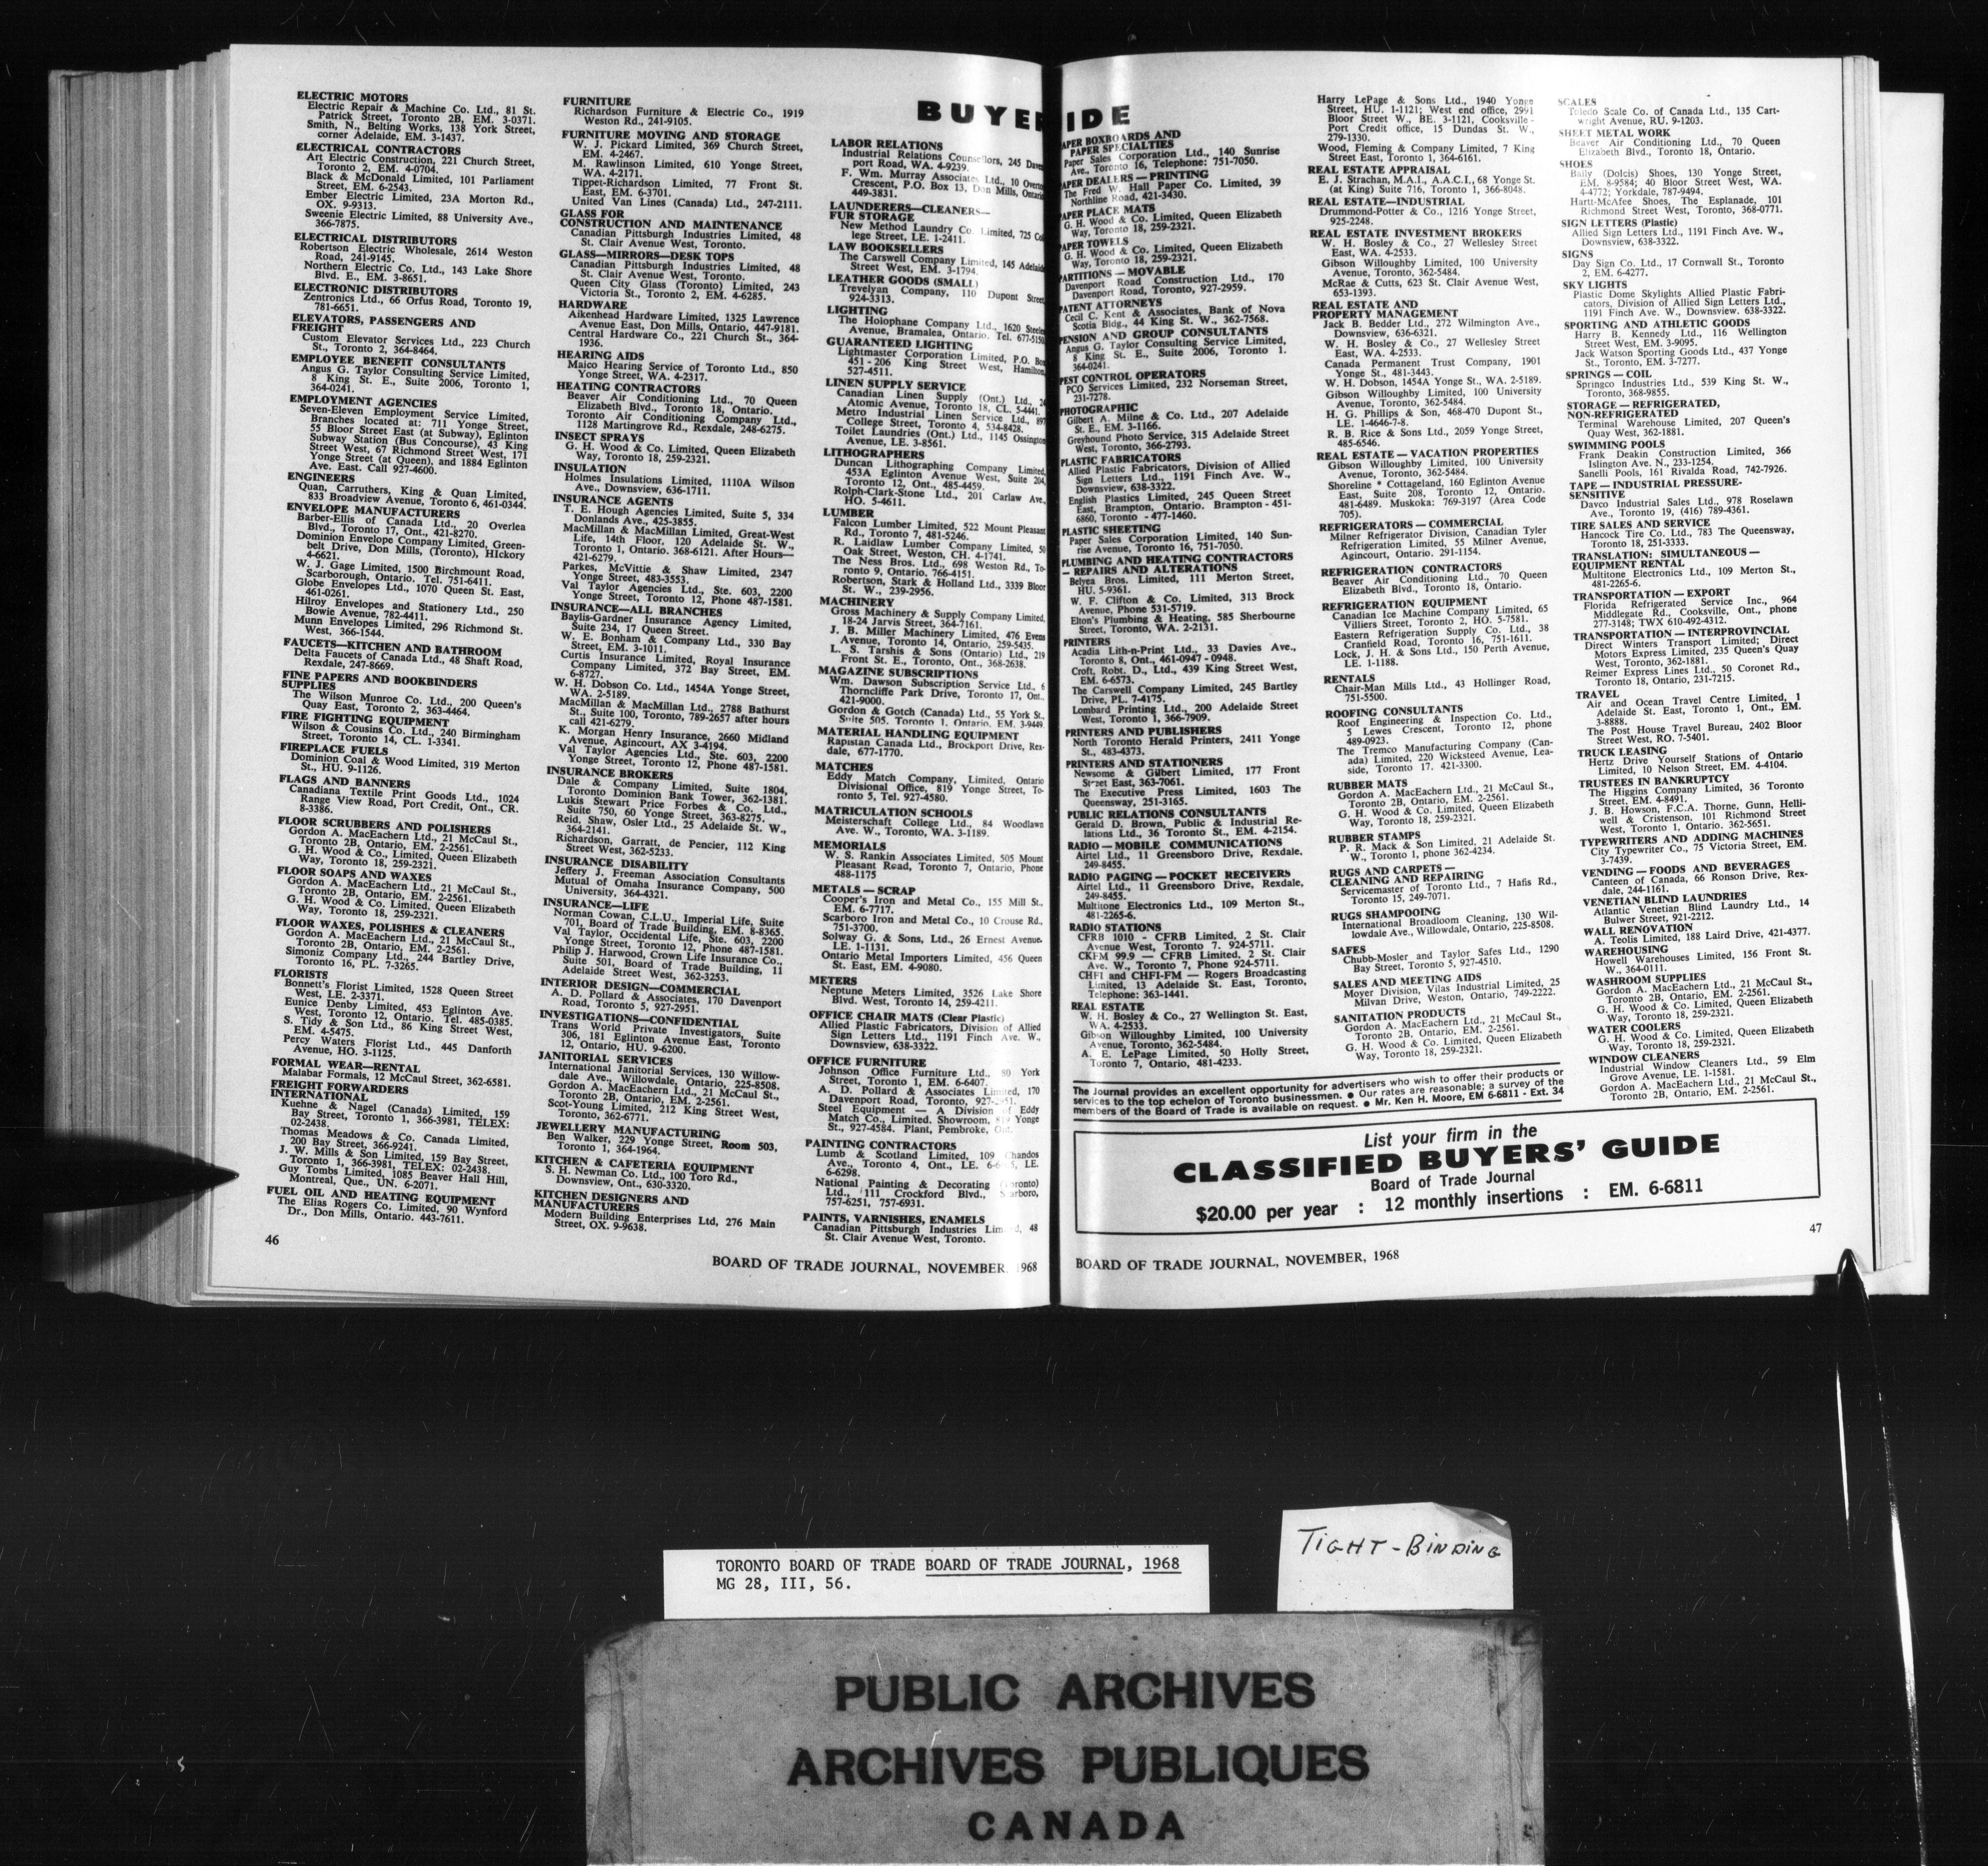 BUYER
ELECTRIC MOTORS
Electric Repair & Machine Co. Ltd., 81 St.
Patrick Street, Toronto 2B, EM. 3-0371.
Smith, N., Belting Works, 138 York Street,
corner Adelaide, EM. 3-1437.
ELECTRICAL CONTRACTORS
Art Electric Construction, 221 Church Street,
Toronto 2, EM. 4-0704.
Black & McDonald Limited, 101 Parliament
Street, EM. 6-2543.
Ember Electric Limited, 23A Morton Rd.,
OX. 9-9313.
Sweenie Electric Limited, 88 University Ave.,
366-7875.
ELECTRICAL DISTRIBUTORS
Robertson Electric Wholesale, 2614 Weston
Road, 241-9145.
Northern Electric Co. Ltd., 143 Lake Shore
Blvd. E., EM. 3-8651.
ELECTRONIC DISTRIBUTORS
Zentronics Ltd., 66 Orfus Road, Toronto 19,
781-6651.
ELEVATORS, PASSENGERS AND
FREIGHT
Custom Elevator Services Ltd., 223 Church
St., Toronto 2, 364-8464.
EMPLOYEE BENEFIT CONSULTANTS
Angus G. Taylor Consulting Service Limited,
8 King St. E., Suite 2006, Toronto 1,
364-0241.
EMPLOYMENT AGENCIES
Seven-Eleven Employment Service Limited,
Branches located at: 711 Yonge Street,
55 Bloor Street East (at Subway), Eglinton
Subway Station (Bus Concourse), 43 King
Street West, 67 Richmond Street West, 171
Yonge Street (at Queen), and 1884 Eglinton
Ave. East. Call 927-4600.
ENGINEERS
Quan, Carruthers, King & Quan Limited,
833 Broadview Avenue, Toronto 6, 461-0344.
ENVELOPE MANUFACTURERS
Barber-Ellis of Canada Ltd., 20 Overlea
Blvd., Toronto 17, Ont., 421-8270.
Dominion Envelope Company Limited, Green-
belt Drive, Don Mills, (Toronto), HIckory
4-6621.
W. J. Gage Limited, 1500 Birchmount Road,
Scarborough, Ontario. Tel. 751-6411.
Globe Envelopes Ltd., 1070 Queen St. East,
461-0261.
Hilroy Envelopes and Stationery Ltd., 250
Bowie Avenue, 782-4411.
Munn Envelopes Limited, 296 Richmond St.
West, 366-1544.
FAUCETS—KITCHEN AND BATHROOM
Delta Faucets of Canada Ltd., 48 Shaft Road,
Rexdale, 247-8669.
FINE PAPERS AND BOOKBINDERS
SUPPLIES
The Wilson Munroe Co. Ltd., 200 Queen's
Quay East, Toronto 2, 363-4464.
FIRE FIGHTING EQUIPMENT
Wilson & Cousins Co. Ltd., 240 Birmingham
Street, Toronto 14, CL. 1-3341.
FIREPLACE FUELS
Dominion Coal & Wood Limited, 319 Merton
St., HU. 9-1126.
FLAGS AND BANNERS
Canadiana Textile Print Goods Ltd., 1024
Range View Road, Port Credit, Ont., CR.
8-3386.
FLOOR SCRUBBERS AND POLISHERS
Gordon A. MacEachern Ltd., 21 McCaul St.,
Toronto 2B, Ontario, EM. 2-2561.
G. H. Wood & Co., Limited, Queen Elizabeth
Way, Toronto 18, 259-2321.
FLOOR SOAPS AND WAXES
Gordon A. MacEachern Ltd., 21 McCaul St.,
Toronto 2B, Ontario, EM. 2-2561.
G. H. Wood & Co. Limited, Queen Elizabeth
Way, Toronto 18, 259-2321.
FLOOR WAXES, POLISHES & CLEANERS
Gordon A. MacEachern Ltd., 21 McCaul St.,
Toronto 2B, Ontario, EM. 2-2561.
Simoniz Company Ltd., 244 Bartley Drive,
Toronto 16, PL. 7-3265.
FLORISTS
Bonnett's Florist Limited, 1528 Queen Street
West, LE. 2-3371.
Eunice Denby Limited, 453 Eglinton Ave.
West, Toronto 12, Ontario. Tel. 485-0385.
S. Tidy & Son Ltd., 86 King Street West,
EM. 4-5475.
Percy Waters Florist Ltd., 445 Danforth
Avenue, HO. 3-1125.
FORMAL WEAR—RENTAL
Malabar Formals, 12 McCaul Street, 362-6581.
FREIGHT FORWARDERS
INTERNATIONAL
Kuehne & Nagel (Canada) Limited, 159
Bay Street, Toronto 1, 366-3981, TELEX:
02-2438.
Thomas Meadows & Co. Canada Limited,
200 Bay Street, 366-9241.
J. W. Mills & Son Limited, 159 Bay Street,
Toronto 1, 366-3981, TELEX: 02-2438.
Guy Tombs Limited, 1085 Beaver Hall Hill,
Montreal, Que., UN. 6-2071.
FUEL OIL AND HEATING EQUIPMENT
The Elias Rogers Co. Limited, 90 Wynford
Dr., Don Mills, Ontario. 443-7611.
FURNITURE
Richardson Furniture & Electric Co., 1919
Weston Rd., 241-9105.
FURNITURE MOVING AND STORAGE
W. J. Pickard Limited, 369 Church Street,
EM. 4-2467.
M. Rawlinson Limited, 610 Yonge Street,
WA. 4-2171.
Tippet-Richardson Limited, 77 Front St.
East, EM. 6-3701.
United Van Lines (Canada) Ltd., 247-2111.
GLASS FOR
CONSTRUCTION AND MAINTENANCE
Canadian Pittsburgh Industries Limited, 48
St. Clair Avenue West, Toronto.
GLASS—MIRRORS—DESK TOPS
Canadian Pittsburgh Industries Limited, 48
St. Clair Avenue West, Toronto.
Queen City Glass (Toronto) Limited, 243
Victoria St., Toronto 2, EM. 4-6285.
HARDWARE
Aikenhead Hardware Limited, 1325 Lawrence
Avenue East, Don Mills, Ontario, 447-9181.
Central Hardware Co., 221 Church St., 364-
1936.
HEARING AIDS
Maico Hearing Service of Toronto Ltd., 850
Yonge Street, WA. 4-2317.
HEATING CONTRACTORS
Beaver Air Conditioning Ltd., 70 Queen
Elizabeth Blvd., Toronto 18, Ontario.
Toronto Air Conditioning Company Ltd.,
1128 Martingrove Rd., Rexdale, 248-6275.
INSECT SPRAYS
G. H. Wood & Co. Limited, Queen Elizabeth
Way, Toronto 18, 259-2321.
INSULATION
Holmes Insulations Limited, 1110A Wilson
Ave., Downsview, 636-1711.
INSURANCE AGENTS
T. E. Hough Agencies Limited, Suite 5, 334
Donlands Ave., 425-3855.
MacMillan & MacMillan Limited, Great-West
Life, 14th Floor, 120 Adelaide St. W.,
Toronto 1, Ontario. 368-6121. After Hours—
421-6279.
Parkes, McVittie & Shaw Limited, 2347
Yonge Street, 483-3553.
Val Taylor Agencies Ltd., Ste. 603, 2200
Yonge Street, Toronto 12, Phone 487-1581.
INSURANCE—ALL BRANCHES
Baylis-Gardner Insurance Agency Limited,
Suite 234, 17 Queen Street.
W. E. Bonham & Company Ltd., 330 Bay
Street, EM. 3-1011.
Curtis Insurance Limited, Royal Insurance
Company Limited, 372 Bay Street, EM.
6-8727.
W. H. Dobson Co. Ltd., 1454A Yonge Street,
WA. 2-5189.
MacMillan & MacMillan Ltd., 2788 Bathurst
St., Suite 100, Toronto, 789-2657 after hours
call 421-6279.
K. Morgan Henry Insurance, 2660 Midland
Avenue, Agincourt, AX 3-4194.
Val Taylor Agencies Ltd., Ste. 603, 2200
Yonge Street, Toronto 12, Phone 487-1581.
INSURANCE BROKERS
Dale & Company Limited, Suite 1804,
Toronto Dominion Bank Tower, 362-1381.
Lukis Stewart Price Forbes & Co. Ltd.,
Suite 750, 60 Yonge Street, 363-8275.
Reid, Shaw, Osler Ltd., 25 Adelaide St. W.,
364-2141.
Richardson, Garratt, de Pencier, 112 King
Street West, 362-5233.
INSURANCE DISABILITY
Jeffery J. Freeman Association Consultants
Mutual of Omaha Insurance Company, 500
University, 364-4321.
INSURANCE—LIFE
Norman Cowan, C.L.U., Imperial Life, Suite
701, Board of Trade Building, EM. 8-8365.
Val Taylor, Occidental Life, Ste. 603, 2200
Yonge Street, Toronto 12, Phone 487-1581.
Philip J. Harwood, Crown Life Insurance Co.,
Suite 501, Board of Trade Building, 11
Adelaide Street West, 362-3253.
INTERIOR DESIGN—COMMERCIAL
A. D. Pollard & Associates, 170 Davenport
Road, Toronto 5, 927-2951.
INVESTIGATIONS—CONFIDENTIAL
Trans World Private Investigators, Suite
306, 181 Eglinton Avenue East, Toronto
12, Ontario, HU. 9-6200.
JANITORIAL SERVICES
International Janitorial Services, 130 Willow-
dale Ave., Willowdale, Ontario, 225-8508.
Gordon A. MacEachern Ltd., 21 McCaul St.,
Toronto 2B, Ontario, EM. 2-2561.
Scot-Young Limited, 212 King Street West,
Toronto, 362-6771.
JEWELLERY MANUFACTURING
Ben Walker, 229 Yonge Street, Room 503,
Toronto 1, 364-1964.
KITCHEN & CAFETERIA EQUIPMENT
S. H. Newman Co. Ltd., 100 Toro Rd.,
Downsview, Ont., 630-3320.
KITCHEN DESIGNERS AND
MANUFACTURERS
Modern Building Enterprises Ltd, 276 Main
Street, OX. 9-9638.
LABOR RELATIONS
Industrial Relations Counsellors, 245
port Road, WA. 4-9239.
F. Wm. Murray Associates Ltd., 10
Crescent, P.O. Box 13, Don Mills, Ontario
449-3831.
LAUNDERERS—CLEANERS—
FUR STORAGE
New Method Laundry Co. Limited, 725
lege Street, LE. 1-2411.
LAW BOOKSELLERS
The Carswell Company Limited, 145 Adelaide
Street West, EM. 3-1794.
LEATHER GOODS (SMALL)
Trevelyan Company, 110 Dupont Street
924-3313.
LIGHTING
The Holophane Company Ltd., 1620 Steeles
Avenue, Bramalea, Ontario. Tel. 677-5150
GUARANTEED LIGHTING
Lightmaster Corporation Limited, P.O. Box
451 - 206 King Street West, Hamilton,
527-4511.
LINEN SUPPLY SERVICE
Canadian Linen Supply (Ont.) Ltd.,
Atomic Avenue, Toronto 18, CL. 5-4441.
Metro Industrial Linen Service Ltd., 897
College Street, Toronto 4, 534-8428.
Toilet Laundries (Ont.) Ltd., 1145 Ossington
Avenue, LE. 3-8561.
LITHOGRAPHERS
Duncan Lithographing Company Limited,
453A Eglinton Avenue West, Suite 204,
Toronto 12, Ont., 485-4459.
Rolph-Clark-Stone Ltd., 201 Carlaw Ave.,
HO. 5-4611.
LUMBER
Falcon Lumber Limited, 522 Mount Pleasant
Rd., Toronto 7, 481-5246.
R. Laidlaw Lumber Company Limited, 50
Oak Street, Weston, CH. 4-1741.
The Ness Bros. Ltd., 698 Weston Rd., To-
ronto 9, Ontario. 766-4151.
Robertson, Stark & Holland Ltd., 3339 Bloor
St. W., 239-2956.
MACHINERY
Gross Machinery & Supply Company Limited,
18-24 Jarvis Street, 364-7161.
J. B. Miller Machinery Limited, 476 Evans
Avenue, Toronto 14, Ontario, 259-5435.
L. S. Tarshis & Sons (Ontario) Ltd., 219
Front St. E., Toronto, Ont., 368-2638.
MAGAZINE SUBSCRIPTIONS
Wm. Dawson Subscription Service Ltd., 6
Thorncliffe Park Drive, Toronto 17, Ont.,
421-9000.
Gordon & Gotch (Canada) Ltd., 55 York St.,
Suite 505, Toronto 1, Ontario, EM. 3-9449
MATERIAL HANDLING EQUIPMENT
Rapistan Canada Ltd., Brockport Drive, Rex-
dale, 677-1770.
MATCHES
Eddy Match Company, Limited, Ontario
Divisional Office, 819 Yonge Street, To-
ronto 5, Tel. 927-4580.
MATRICULATION SCHOOLS
Meisterschaft College Ltd., 84 Woodlawn
Ave. W., Toronto, WA. 3-1189.
MEMORIALS
W. S. Rankin Associates Limited, 505 Mount
Pleasant Road, Toronto 7, Ontario, Phone
488-1175
METALS — SCRAP
Cooper's Iron and Metal Co., 155 Mill St.,
EM. 6-7717.
Scarboro Iron and Metal Co., 10 Crouse Rd.,
751-3700.
Solway G. & Sons, Ltd., 26 Ernest Avenue.
LE. 1-1131.
Ontario Metal Importers Limited, 456 Queen
St. East, EM. 4-9080.
METERS
Neptune Meters Limited, 3526 Lake Shore
Blvd. West, Toronto 14, 259-4211.
OFFICE CHAIR MATS (Clear Plastic)
Allied Plastic Fabricators, Division of Allied
Sign Letters Ltd., 1191 Finch Ave. W.,
Downsview, 638-3322.
OFFICE FURNITURE
Johnson Office Furniture Ltd., 80 York
Street, Toronto 1, EM. 6-6407.
A. D. Pollard & Associates Limited, 170
Davenport Road, Toronto, 927-2951.
Steel Equipment — A Division of Eddy
Match Co., Limited. Showroom, 819 Yonge
St., 927-4584. Plant, Pembroke, Ont.
PAINTING CONTRACTORS
Lumb & Scotland Limited, 109 Chandos
Ave., Toronto 4, Ont., LE. LE.
6-6298.
National Painting & Decorating (Toronto)
Ltd., 111 Crockford Blvd., Scarboro,
757-6251, 757-6931.
PAINTS, VARNISHES, ENAMELS
Canadian Pittsburgh Industries Limited, 48
St. Clair Avenue West, Toronto.
46
BOARD OF TRADE JOURNAL, NOVEMBER, 1968
IDE
PAPER BOXBOARDS AND
PAPER SPECIALTIES
Paper Sales Corporation Ltd., 140 Sunrise
Ave., Toronto 16, Telephone: 751-7050.
PAPER DEALERS — PRINTING
The Fred W. Hall Paper Co. Limited, 39
Northline Road, 421-3430.
PAPER PLACE MATS
G. H. Wood & Co. Limited, Queen Elizabeth
Way, Toronto 18, 259-2321.
PAPER TOWELS
G. H. Wood & Co. Limited, Queen Elizabeth
Way, Toronto 18, 259-2321.
PARTITIONS — MOVABLE
Davenport Road Construction Ltd., 170
Davenport Road, Toronto, 927-2959.
PATENT ATTORNEYS
Cecil C. Kent & Associates, Bank of Nova
Scotia Bldg., 44 King St. W., 362-7568.
PENSION AND GROUP CONSULTANTS
Angus G. Taylor Consulting Service Limited,
8 King St. E., Suite 2006, Toronto 1.
364-0241.
PEST CONTROL OPERATORS
PCO Services Limited, 232 Norseman Street,
231-7278.
PHOTOGRAPHIC
Gilbert A. Milne & Co. Ltd., 207 Adelaide
St. E., EM. 3-1166.
Greyhound Photo Service, 315 Adelaide Street
West, Toronto, 366-2793.
PLASTIC FABRICATORS
Allied Plastic Fabricators, Division of Allied
Sign Letters Ltd., 1191 Finch Ave. W.,
Downsview, 638-3322.
English Plastics Limited, 245 Queen Street
East, Brampton, Ontario. Brampton - 451-
6860, Toronto - 477-1460.
PLASTIC SHEETING
Paper Sales Corporation Limited, 140 Sun-
rise Avenue, Toronto 16, 751-7050.
PLUMBING AND HEATING CONTRACTORS
— REPAIRS AND ALTERATIONS
Belyea Bros. Limited, 111 Merton Street,
HU. 5-9361.
W. F. Clifton & Co. Limited, 313 Brock
Avenue, Phone 531-5719.
Elton's Plumbing & Heating, 585 Sherbourne
Street, Toronto, WA. 2-2131.
PRINTERS
Acadia Lith-n-Print Ltd., 33 Davies Ave.,
Toronto 8, Ont., 461-0947 - 0948.
Croft, Robt. D., Ltd., 439 King Street West,
EM. 6-6573.
The Carswell Company Limited, 245 Bartley
Drive, PL. 7-4175.
Lombard Printing Ltd., 200 Adelaide Street
West, Toronto 1, 366-7909.
PRINTERS AND PUBLISHERS
North Toronto Herald Printers, 2411 Yonge
St., 483-4373.
PRINTERS AND STATIONERS
Newsome & Gilbert Limited, 177 Front
Street East, 363-7061.
The Executive Press Limited, 1603 The
Queensway, 251-3165.
PUBLIC RELATIONS CONSULTANTS
Gerald D. Brown, Public & Industrial Re-
lations Ltd., 36 Toronto St., EM. 4-2154.
RADIO — MOBILE COMMUNICATIONS
Airtel Ltd., 11 Greensboro Drive, Rexdale.
249-8455.
RADIO PAGING — POCKET RECEIVERS
Airtel Ltd., 11 Greensboro Drive, Rexdale,
249-8455.
Multitone Electronics Ltd., 109 Merton St.,
481-2265-6.
RADIO STATIONS
CFRB 1010 - CFRB Limited, 2 St. Clair
Avenue West, Toronto 7. 924-5711.
CKFM 99.9 — CFRB Limited, 2 St. Clair
Ave. W., Toronto 7, Phone 924-5711.
CHFI and CHFI-FM — Rogers Broadcasting
Limited, 13 Adelaide St. East, Toronto,
Telephone: 363-1441.
REAL ESTATE
W. H. Bosley & Co., 27 Wellington St. East,
WA. 4-2533.
Gibson Willoughby Limited, 100 University
Avenue, Toronto, 362-5484.
A. E. LePage Limited, 50 Holly Street,
Toronto 7, Ontario, 481-4233.
Harry LePage & Sons Ltd., 1940 Yonge
Street, HU. 1-1121; West end office, 2991
Bloor Street W., BE. 3-1121, Cooksville -
Port Credit office, 15 Dundas St. W.,
279-1330.
Wood, Fleming & Company Limited, 7 King
Street East, Toronto 1, 364-6161.
REAL ESTATE APPRAISAL
E. J. Strachan, M.A.I., A.A.C.I., 68 Yonge St.
(at King) Suite 716, Toronto 1, 366-8048.
REAL ESTATE—INDUSTRIAL
Drummond-Potter & Co., 1216 Yonge Street,
925-2248.
REAL ESTATE INVESTMENT BROKERS
W. H. Bosley & Co., 27 Wellesley Street
East, WA. 4-2533.
Gibson Willoughby Limited, 100 University
Avenue, Toronto, 362-5484.
McRae & Cutts, 623 St. Clair Avenue West,
653-1393.
REAL ESTATE AND
PROPERTY MANAGEMENT
Jack B. Bedder Ltd., 272 Wilmington Ave.,
Downsview, 636-6321.
W. H. Bosley & Co., 27 Wellesley Street
East, WA. 4-2533.
Canada Permanent Trust Company, 1901
Yonge St., 481-3443.
W. H. Dobson, 1454A Yonge St., WA. 2-5189.
Gibson Willoughby Limited, 100 University
Avenue, Toronto, 362-5484.
H. G. Phillips & Son, 468-470 Dupont St.,
LE. 1-4646-7-8.
R. B. Rice & Sons Ltd., 2059 Yonge Street,
485-6546.
REAL ESTATE — VACATION PROPERTIES
Gibson Willoughby Limited, 100 University
Avenue, Toronto, 362-5484.
Shoreline * Cottageland, 160 Eglinton Avenue
East, Suite 208, Toronto 12, Ontario.
481-6489. Muskoka: 769-3197 (Area Code
705).
REFRIGERATORS — COMMERCIAL
Milner Refrigerator Division, Canadian Tyler
Refrigeration Limited, 55 Milner Avenue,
Agincourt, Ontario. 291-1154.
REFRIGERATION CONTRACTORS
Beaver Air Conditioning Ltd., 70 Queen
Elizabeth Blvd., Toronto 18, Ontario.
REFRIGERATION EQUIPMENT
Canadian Ice Machine Company Limited, 65
Villiers Street, Toronto 2, HO. 5-7581.
Eastern Refrigeration Supply Co. Ltd., 38
Cranfield Road, Toronto 16, 751-1611.
Lock, J. H. & Sons Ltd., 150 Perth Avenue,
LE. 1-1188.
RENTALS
Chair-Man Mills Ltd., 43 Hollinger Road,
751-5500.
ROOFING CONSULTANTS
Roof Engineering & Inspection Co. Ltd.,
5 Lewes Crescent, Toronto 12, phone
489-0923.
The Tremco Manufacturing Company (Can-
ada) Limited, 220 Wicksteed Avenue, Lea-
side, Toronto 17. 421-3300.
RUBBER MATS
Gordon A. MacEachern Ltd., 21 McCaul St.,
Toronto 2B, Ontario, EM. 2-2561.
G. H. Wood & Co. Limited, Queen Elizabeth
Way, Toronto 18, 259-2321.
RUBBER STAMPS
P. R. Mack & Son Limited, 21 Adelaide St.
W., Toronto 1, phone 362-4234.
RUGS AND CARPETS —
CLEANING AND REPAIRING
Servicemaster of Toronto Ltd., 7 Hafis Rd.,
Toronto 15, 249-7071.
RUGS SHAMPOOING
International Broadloom Cleaning, 130 Wil-
lowdale Ave., Willowdale, Ontario, 225-8508.
SAFES
Chubb-Mosler and Taylor Safes Ltd., 1290
Bay Street, Toronto 5, 927-4510.
SALES AND MEETING AIDS
Moyer Division, Vilas Industrial Limited, 25
Milvan Drive, Weston, Ontario, 749-2222.
SANITATION PRODUCTS
Gordon A. MacEachern Ltd., 21 McCaul St.,
Toronto 2B, Ontario, EM. 2-2561.
G. H. Wood & Co. Limited, Queen Elizabeth
Way, Toronto 18, 259-2321.
SCALES
Toledo Scale Co. of Canada Ltd., 135 Cart-
wright Avenue, RU. 9-1203.
SHEET METAL WORK
Beaver Air Conditioning Ltd., 70 Queen
Elizabeth Blvd., Toronto 18, Ontario.
SHOES
Bally (Dolcis) Shoes, 130 Yonge Street,
EM. 8-9584; 40 Bloor Street West, WA.
4-4772; Yorkdale, 787-9494.
Hartt-McAfee Shoes, The Esplanade, 101
Richmond Street West, Toronto, 368-0771.
SIGN LETTERS (Plastic)
Allied Sign Letters Ltd., 1191 Finch Ave. W.,
Downsview, 638-3322.
SIGNS
Day Sign Co. Ltd., 17 Cornwall St., Toronto
2, EM. 6-4277.
SKY LIGHTS
Plastic Dome Skylights Allied Plastic Fabri-
cators, Division of Allied Sign Letters Ltd.,
1191 Finch Ave. W., Downsview. 638-3322.
SPORTING AND ATHLETIC GOODS
Harry B. Kennedy Ltd., 116 Wellington
Street West, EM. 3-9095.
Jack Watson Sporting Goods Ltd., 437 Yonge
St., Toronto, EM. 3-7277.
SPRINGS — COIL
Springco Industries Ltd., 539 King St. W.,
Toronto, 368-9855.
STORAGE — REFRIGERATED,
NON-REFRIGERATED
Terminal Warehouse Limited, 207 Queen's
Quay West, 362-1881.
SWIMMING POOLS
Frank Deakin Construction Limited, 366
Islington Ave. N., 233-1254.
Sanelli Pools, 161 Rivalda Road, 742-7926.
TAPE — INDUSTRIAL PRESSURE-
SENSITIVE
Davco Industrial Sales Ltd., 978 Roselawn
Ave., Toronto 19, (416) 789-4361.
TIRE SALES AND SERVICE
Hancock Tire Co. Ltd., 783 The Queensway,
Toronto 18, 251-3333.
TRANSLATION: SIMULTANEOUS —
EQUIPMENT RENTAL
Multitone Electronics Ltd., 109 Merton St.,
481-2265-6.
TRANSPORTATION — EXPORT
Florida Refrigerated Service Inc., 964
Middlegate Rd., Cooksville, Ont., phone
277-3148; TWX 610-492-4312.
TRANSPORTATION — INTERPROVINCIAL
Direct Winters Transport Limited; Direct
Motors Express Limited, 235 Queen's Quay
West, Toronto, 362-1881.
Reimer Express Lines Ltd., 50 Coronet Rd.,
Toronto 18, Ontario, 231-7215.
TRAVEL
Air and Ocean Travel Centre Limited, 1
Adelaide St. East, Toronto 1, Ont., EM.
3-8888.
The Post House Travel Bureau, 2402 Bloor
Street West, RO. 7-5401.
TRUCK LEASING
Hertz Drive Yourself Stations of Ontario
Limited, 10 Nelson Street, EM. 4-4104.
TRUSTEES IN BANKRUPTCY
The Higgins Company Limited, 36 Toronto
Street, EM. 4-8491.
J. B. Howson, F.C.A. Thorne, Gunn, Helli-
well & Cristenson, 101 Richmond Street
West, Toronto 1, Ontario. 362-5651.
TYPEWRITERS AND ADDING MACHINES
City Typewriter Co., 75 Victoria Street, EM.
3-7439.
VENDING — FOODS AND BEVERAGES
Canteen of Canada, 66 Ronson Drive, Rex-
dale, 244-1161.
VENETIAN BLIND LAUNDRIES
Atlantic Venetian Blind Laundry Ltd., 14
Bulwer Street, 921-2212.
WALL RENOVATION
A. Teolis Limited, 188 Laird Drive, 421-4377.
WAREHOUSING
Howell Warehouses Limited, 156 Front St.
W., 364-0111.
WASHROOM SUPPLIES
Gordon A. MacEachern Ltd., 21 McCaul St.,
Toronto 2B, Ontario, EM. 2-2561.
G. H. Wood & Co. Limited, Queen Elizabeth
Way, Toronto 18, 259-2321.
WATER COOLERS
G. H. Wood & Co. Limited, Queen Elizabeth
Way, Toronto 18, 259-2321.
WINDOW CLEANERS
Industrial Window Cleaners Ltd., 59 Elm
Grove Avenue, LE. 1-1581.
Gordon A. MacEachern Ltd., 21 McCaul St.,
Toronto 2B, Ontario, EM. 2-2561.
The Journal provides an excellent opportunity for advertisers who wish to offer their products or
services to the top echelon of Toronto businessmen. ● Our rates are reasonable; a survey of the
members of the Board of Trade is available on request. ● Mr. Ken H. Moore, EM 6-6811 - Ext. 34
List your firm in the
CLASSIFIED BUYERS' GUIDE
Board of Trade Journal
$20.00 per year : 12 monthly insertions : EM. 6-6811
BOARD OF TRADE JOURNAL, NOVEMBER, 1968
47
TIGHT-BINDING
TORONTO BOARD OF TRADE BOARD OF TRADE JOURNAL, 1968
MG 28, III, 56.
PUBLIC ARCHIVES
ARCHIVES PUBLIQUES
CANADA